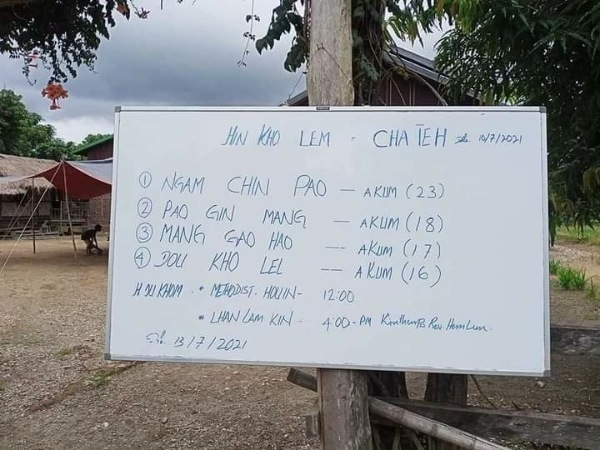 HIN KHO LEM - CHA TEH 10/7/2021
① NGAM CHIN PAO — AKUM (23)
② PAO GIN MANG — AKUM (18)
③ MANG GAO HAO --- AKUM (17)
④ DOU KHO LEL --- AKUM (16)
* METHODIST - HOUIN - 12:00
* LHAN LAM KIN - 4:00 - PM
13/7/2021